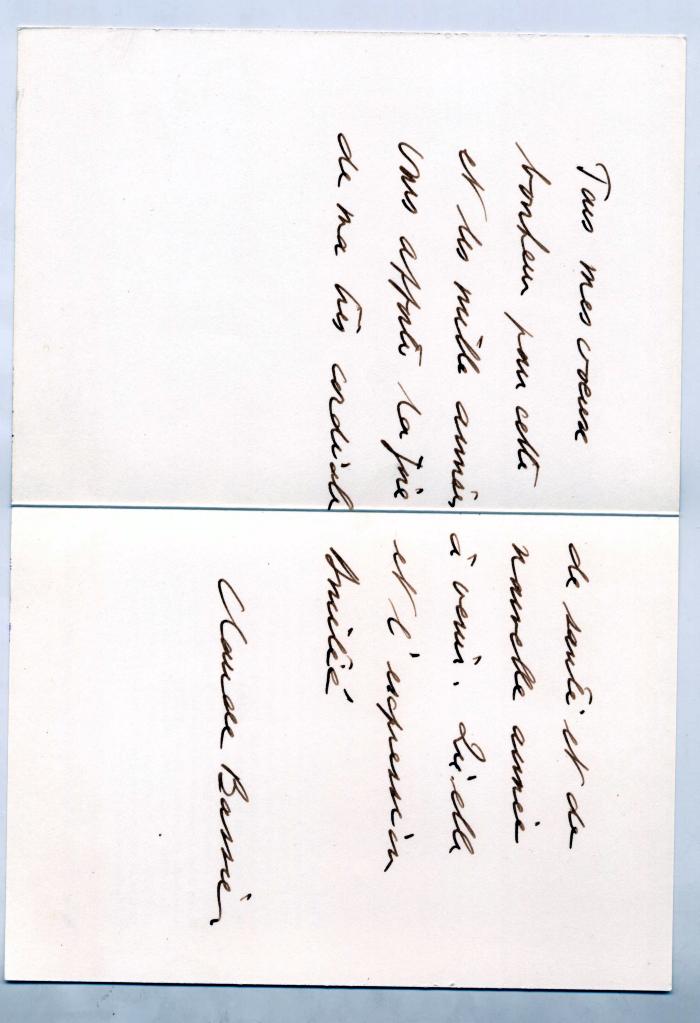 Tous mes voeux de santé et de
bonheur pour cette nouvelle année
et les mille années à venir. Qu'elle
vous apporte la joie et l'expression
de ma très cordiale Amitié
Claude Bassier